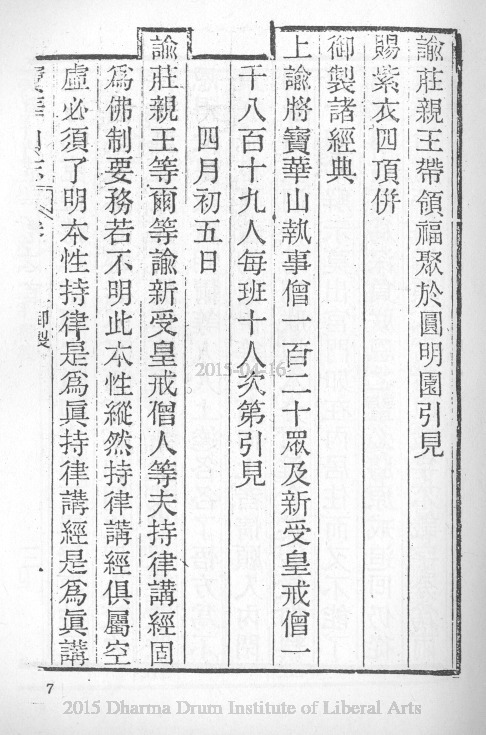 諭莊親王帶領福聚於圓明園引見
賜紫衣四頂併
御製諸經典
上諭將寶華山執事僧一百二十眾及新受皇戒僧一
千八百十九人每班十人次第引見
四月初五日
諭莊親王等爾等諭新受皇戒僧人等夫持律講經固
爲佛制要務若不明此本性縱然持律講經俱屬空
虛必須了明本性持律是爲眞持律講經是爲眞講
御製
2015-04-16
7
2015 Dharma Drum Institute of Liberal Arts